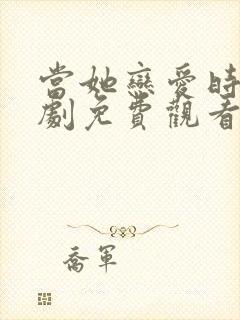 當她戀愛時
劇免費觀看
喬軍